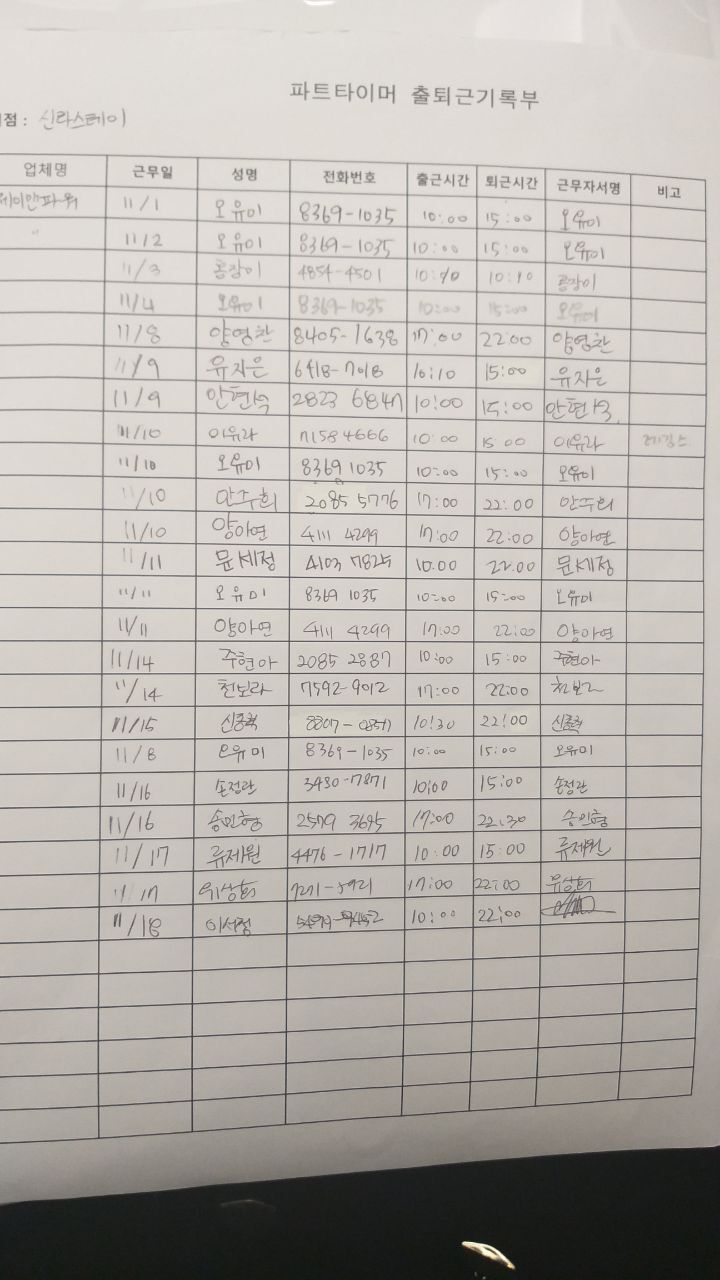 파트타이머 출퇴근기록부
점 : 신라스테이
업체명 근무일 성명 전화번호 출근시간 퇴근시간 근무자서명 비고
제이앤파워 11/1 오유미 8369-1035 10:00 15:00 오유미
" 11/2 오유미 8369-1035 10:00 15:00 오유미
11/3 4854-4501 10:10 10:10
11/4 오유미 8369-1035 10:00 15:00 오유미
11/8 양영찬 8405-1638 17:00 22:00 양영찬
11/9 유지은 6418-7018 10:10 15:00 유지은
11/9 안현숙 2823 6847 10:00 15:00 안현숙
11/10 이유라 7158 4666 10:00 15:00 이유라
11/10 오유미 8369 1035 10:00 15:00 오유미
11/10 안주희 2085 5776 17:00 22:00 안주희
11/10 양아연 4111 4299 17:00 22:00 양아연
11/11 문세정 4103 7825 10:00 22:00 문세정
11/11 오유미 8369 1035 10:00 15:00 오유미
11/11 양아연 4111 4299 17:00 22:00 양아연
11/14 주현아 2085 2887 10:00 15:00 주현아
11/14 천보라 7592-9012 17:00 22:00 천보라
11/15 10:30 22:00
11/8 오유미 8369-1035 10:00 15:00 오유미
11/16 손정란 3430-7871 10:00 15:00 손정란
11/16 송민형 2579 3695 17:00 22:30 송민형
11/17 류제원 4476-1717 10:00 15:00 류제원
11/17 7271-5921 17:00 22:00
11/18 이서정 10:00 22:00